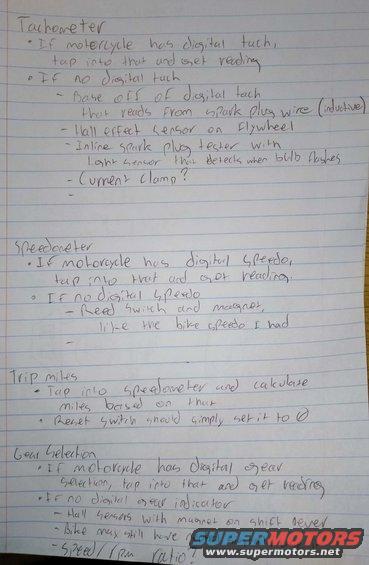 Tachometer
• If motorcycle has digital tach,
tap into that and get reading
• If no digital tach
- Base off of digital tach
that reads from spark plug wire (inductive)
- Hall effect sensor on flywheel
- Inline spark plug tester with
light sensor that detects when bulb flashes
- Current clamp?
-
Speedometer
• If motorcycle has digital speedo,
tap into that and get reading
• If no digital speedo
- Reed switch and magnet,
like the bike speedo I had
-
Trip miles
• Tap into speedometer and calculate
miles based on that
• Reset switch should simply set it to 0
Gear Selection
• If motorcycle has digital gear
selection, tap into that and get reading
• If no digital gear indicator
- Hall sensors with magnet on shift lever
- Bike may still have
- Speed/rpm ratio!
SUPERMOTORS
www.supermotors.net